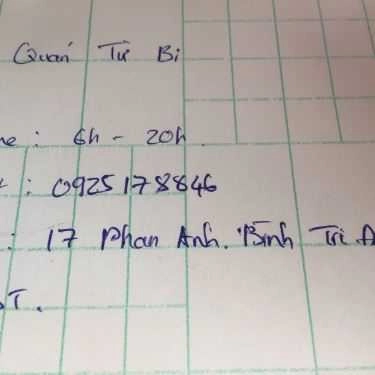 Quán Từ Bi
me : 6h - 20h
: 0925178846
: 17 Phan Anh. Bình Trị Đ
T.